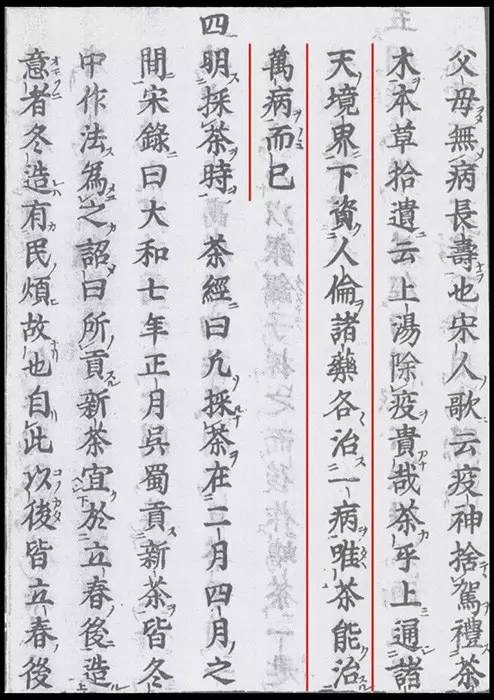 父母無病長壽也宋人歌云疫神捨駕禮茶
木本草拾遺云上湯除疫貴哉茶乎上通諸
天境界下資人倫諸藥各治一病唯茶能治
萬病而已
四明採茶時 茶經曰凡採茶在二月四月之
間宋錄曰大和七年正月吳蜀貢新茶皆冬
中作法為之詔曰所貢新茶宜於立春後造
意者冬造有民煩故也自此以後皆立春後